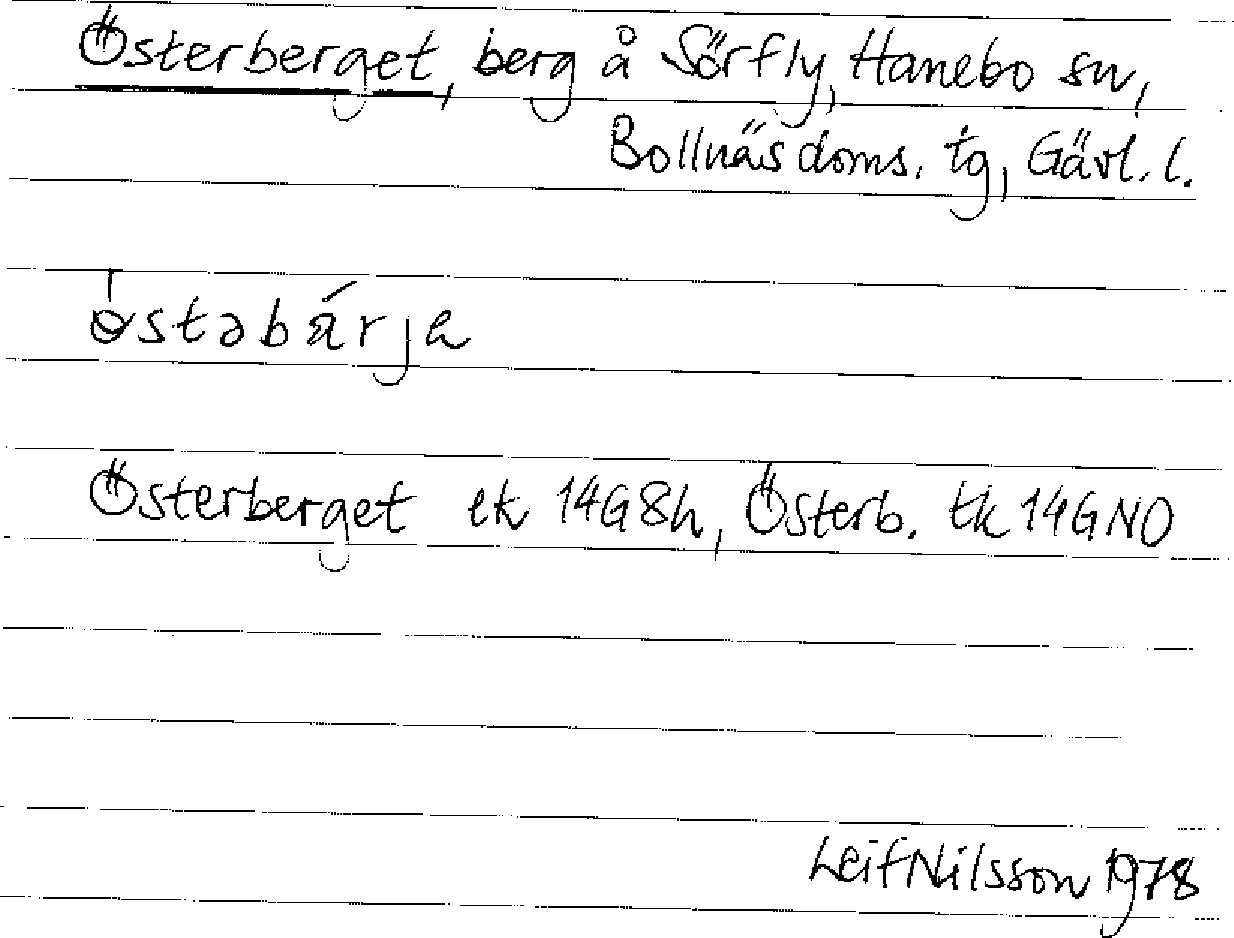 Österberget, berg å Sörfly, Hanebo sn,
Bollnäs doms. tg, Gävl. l.
østəbárja
Österberget ek 14G8h, Österb. tk 14GNO
Leif Nilsson 1978